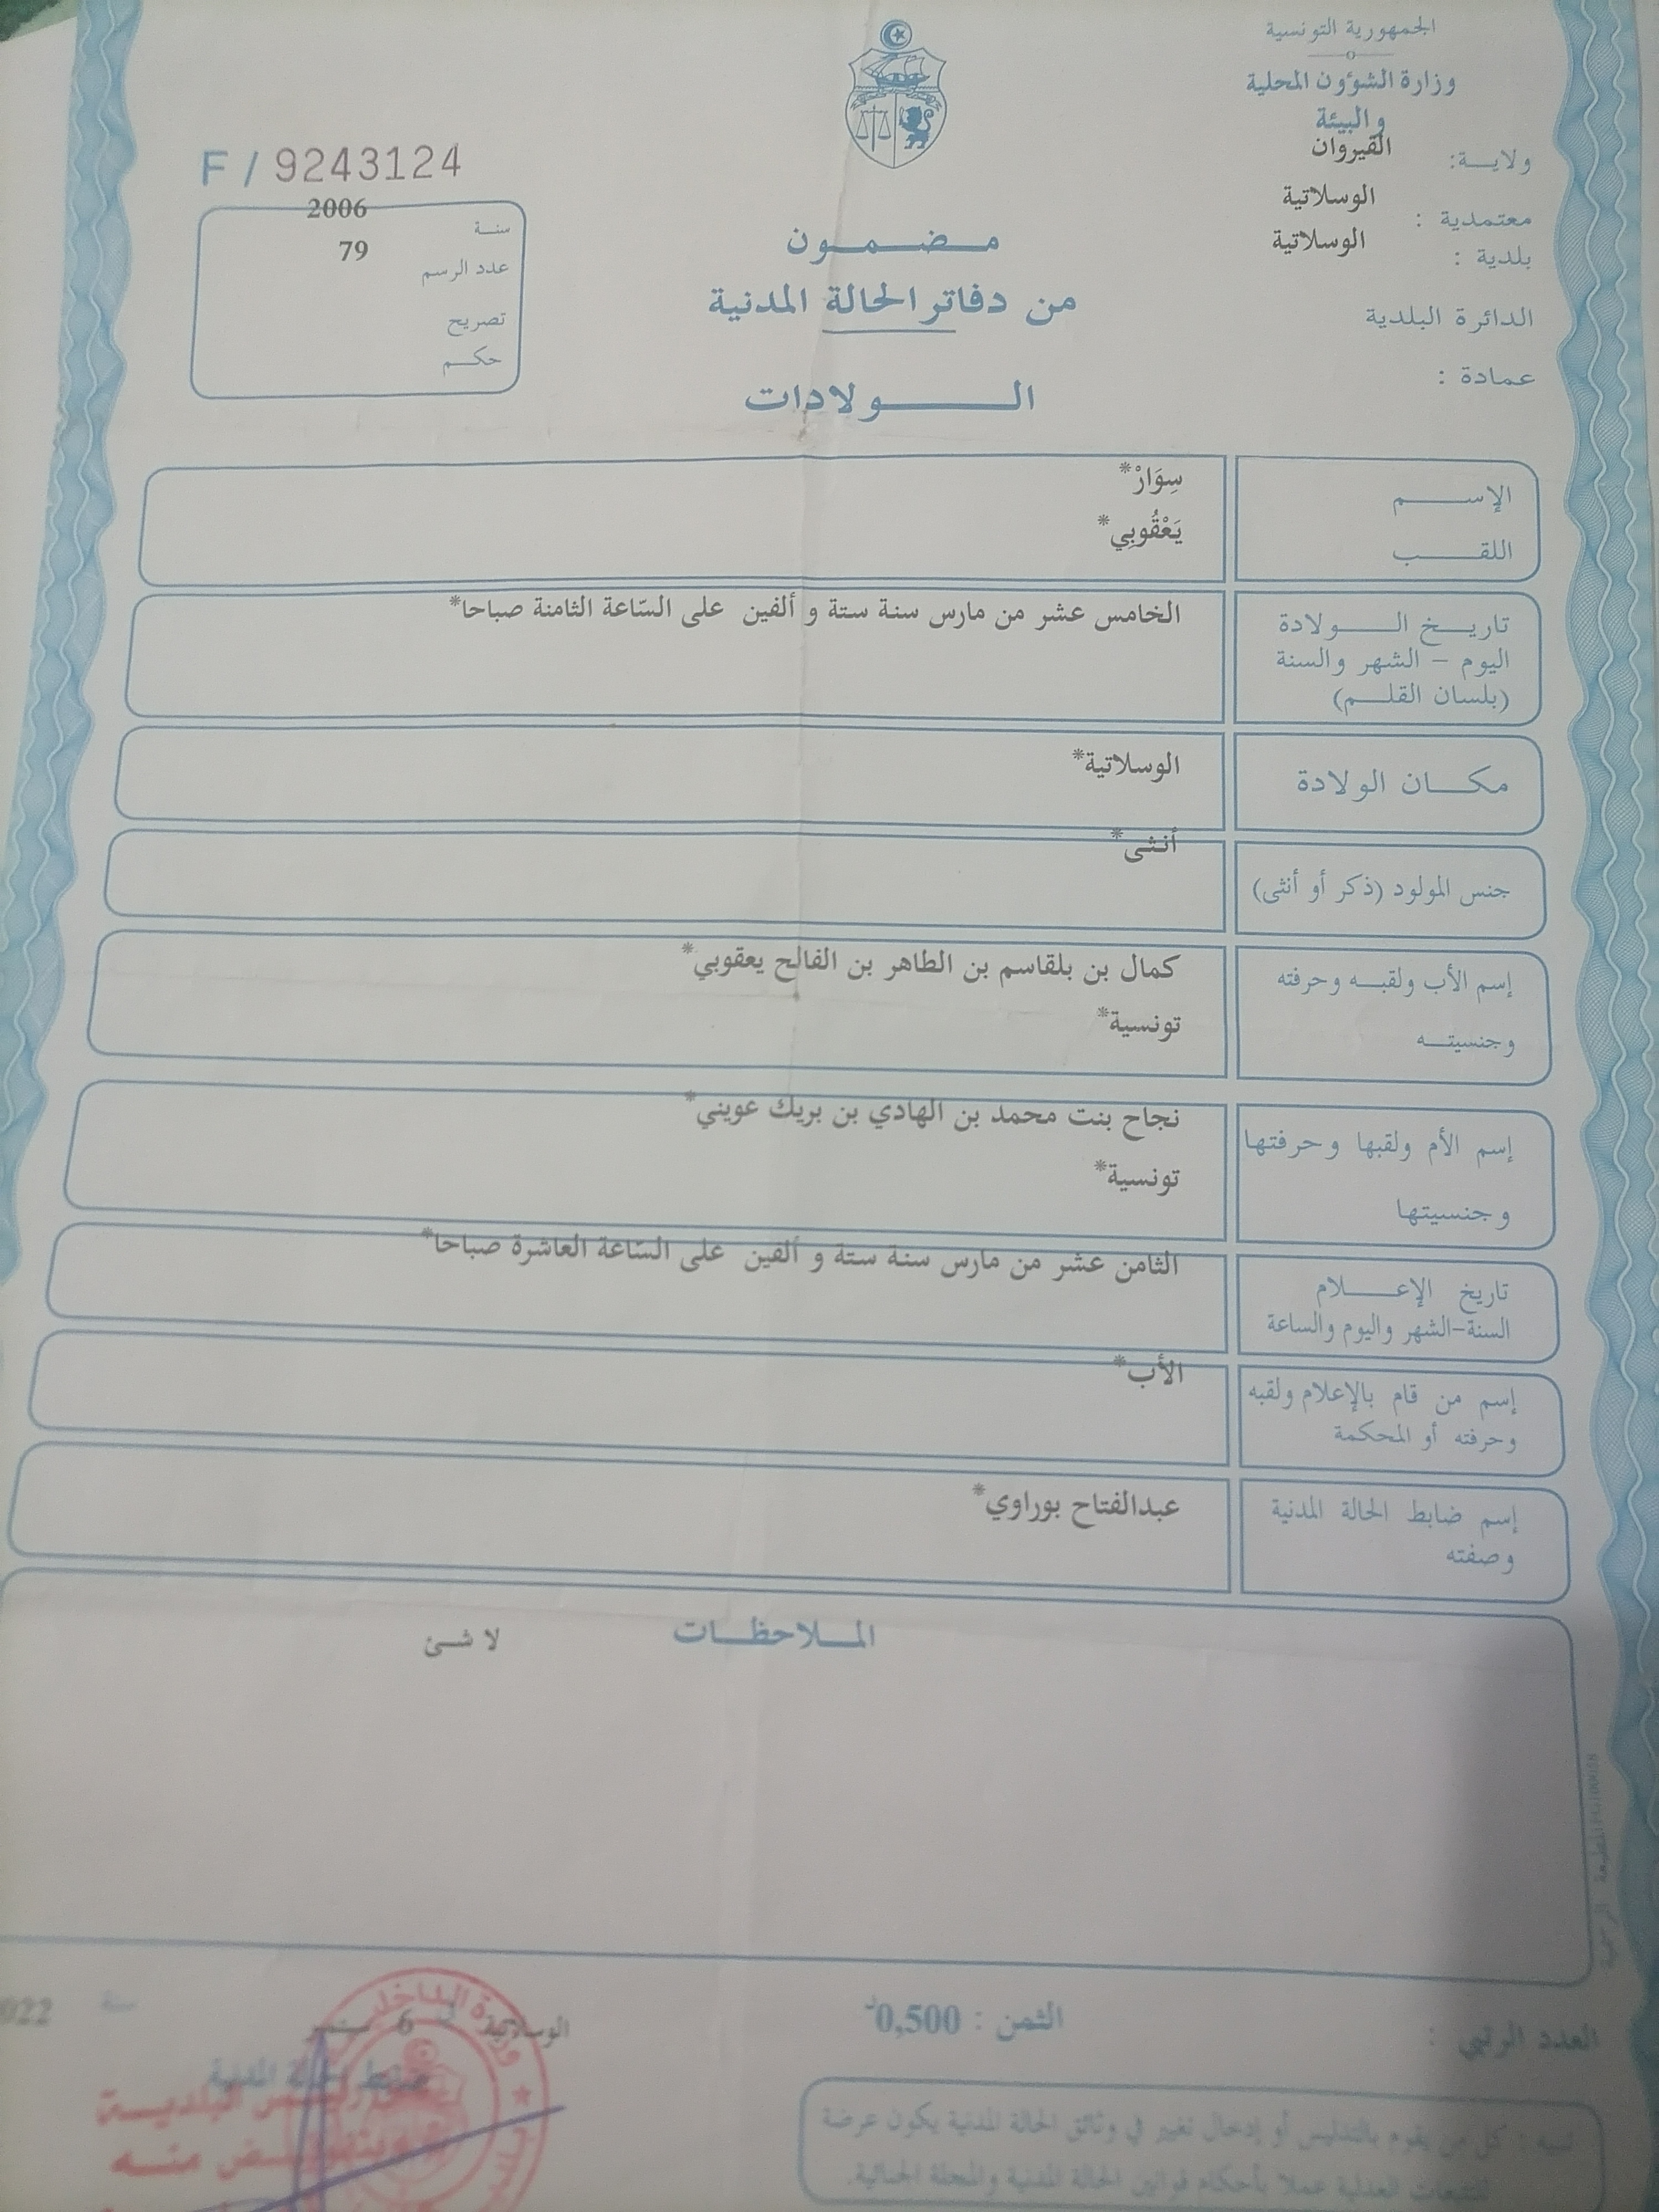 الجمهورية التونسية
وزارة الشؤون المحلية
والبيئة
ولاية: القيروان
معتمدية : الوسلاتية
بلدية : الوسلاتية
الدائرة البلدية
عمادة :
F / 9243124
سنة 2006
عدد الرسم 79
تصريح
حكم
مضمون
من دفاتر الحالة المدنية
الولادات
الإسم سِوَارْ*
اللقب يَعْقُوبِي*
تاريخ الولادة الخامس عشر من مارس سنة ستة و ألفين على السّاعة الثامنة صباحا*
اليوم – الشهر والسنة
(بلسان القلم)
مكان الولادة الوسلاتية*
جنس المولود (ذكر أو أنثى) أنثى*
إسم الأب ولقبه وحرفته كمال بن بلقاسم بن الطاهر بن الفالح يعقوبي*
وجنسيته تونسية*
إسم الأم ولقبها وحرفتها نجاح بنت محمد بن الهادي بن بريك عويني*
وجنسيتها تونسية*
تاريخ الإعلام الثامن عشر من مارس سنة ستة و ألفين على السّاعة العاشرة صباحا*
السنة-الشهر واليوم والساعة
إسم من قام بالإعلام ولقبه الأب*
وحرفته أو المحكمة
إسم ضابط الحالة المدنية عبدالفتاح بوراوي*
وصفته
الملاحظات لا شئ
العدد الرتبي :
الثمن : 0,500د
الوسلاتية في 6 سبتمبر سنة 2022
ضابط الحالة المدنية
تنبيه : كل من يقوم بالتدليس أو إدخال تغيير في وثائق الحالة المدنية يكون عرضة
للتتبعات العدلية عملا بأحكام قوانين الحالة المدنية والمجلة الجنائية.